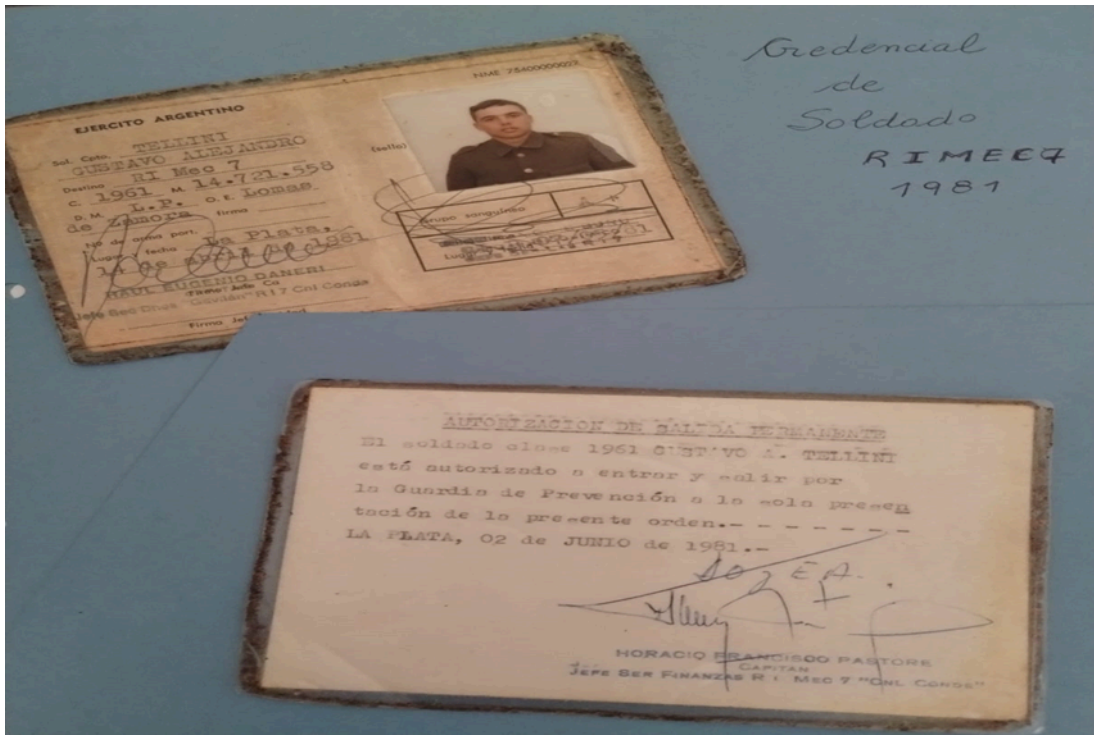 Credencial
de
Soldado
RIMEC7
1981
EJERCITO ARGENTINO
NME 75400000002
Sol. Cpto. TELLINI
GUSTAVO ALEJANDRO
Destino RI Mec 7
C. 1961 M. 14.721.558
D. M. L.P. O. E. Lomas
de Zamora firma
Nº de arma port.
Lugar fecha La Plata,
14 de abril de 1981
RAUL EUGENIO DANERI
Jefe Sec Dños "Gavilán" R I 7 Cnl Conde
Firma Jef
(sello)
Grupo sanguíneo
AUTORIZACION DE SALIDA PERMANENTE
El soldado clase 1961 GUSTAVO A. TELLINI
está autorizado a entrar y salir por
la Guardia de Prevención a la sola presen
tación de la presente orden.- - - - - - - -
LA PLATA, 02 de JUNIO de 1981.-
HORACIO FRANCISCO PASTORE
CAPITAN
JEFE SER FINANZAS R I MEC 7 "CNL CONDE"